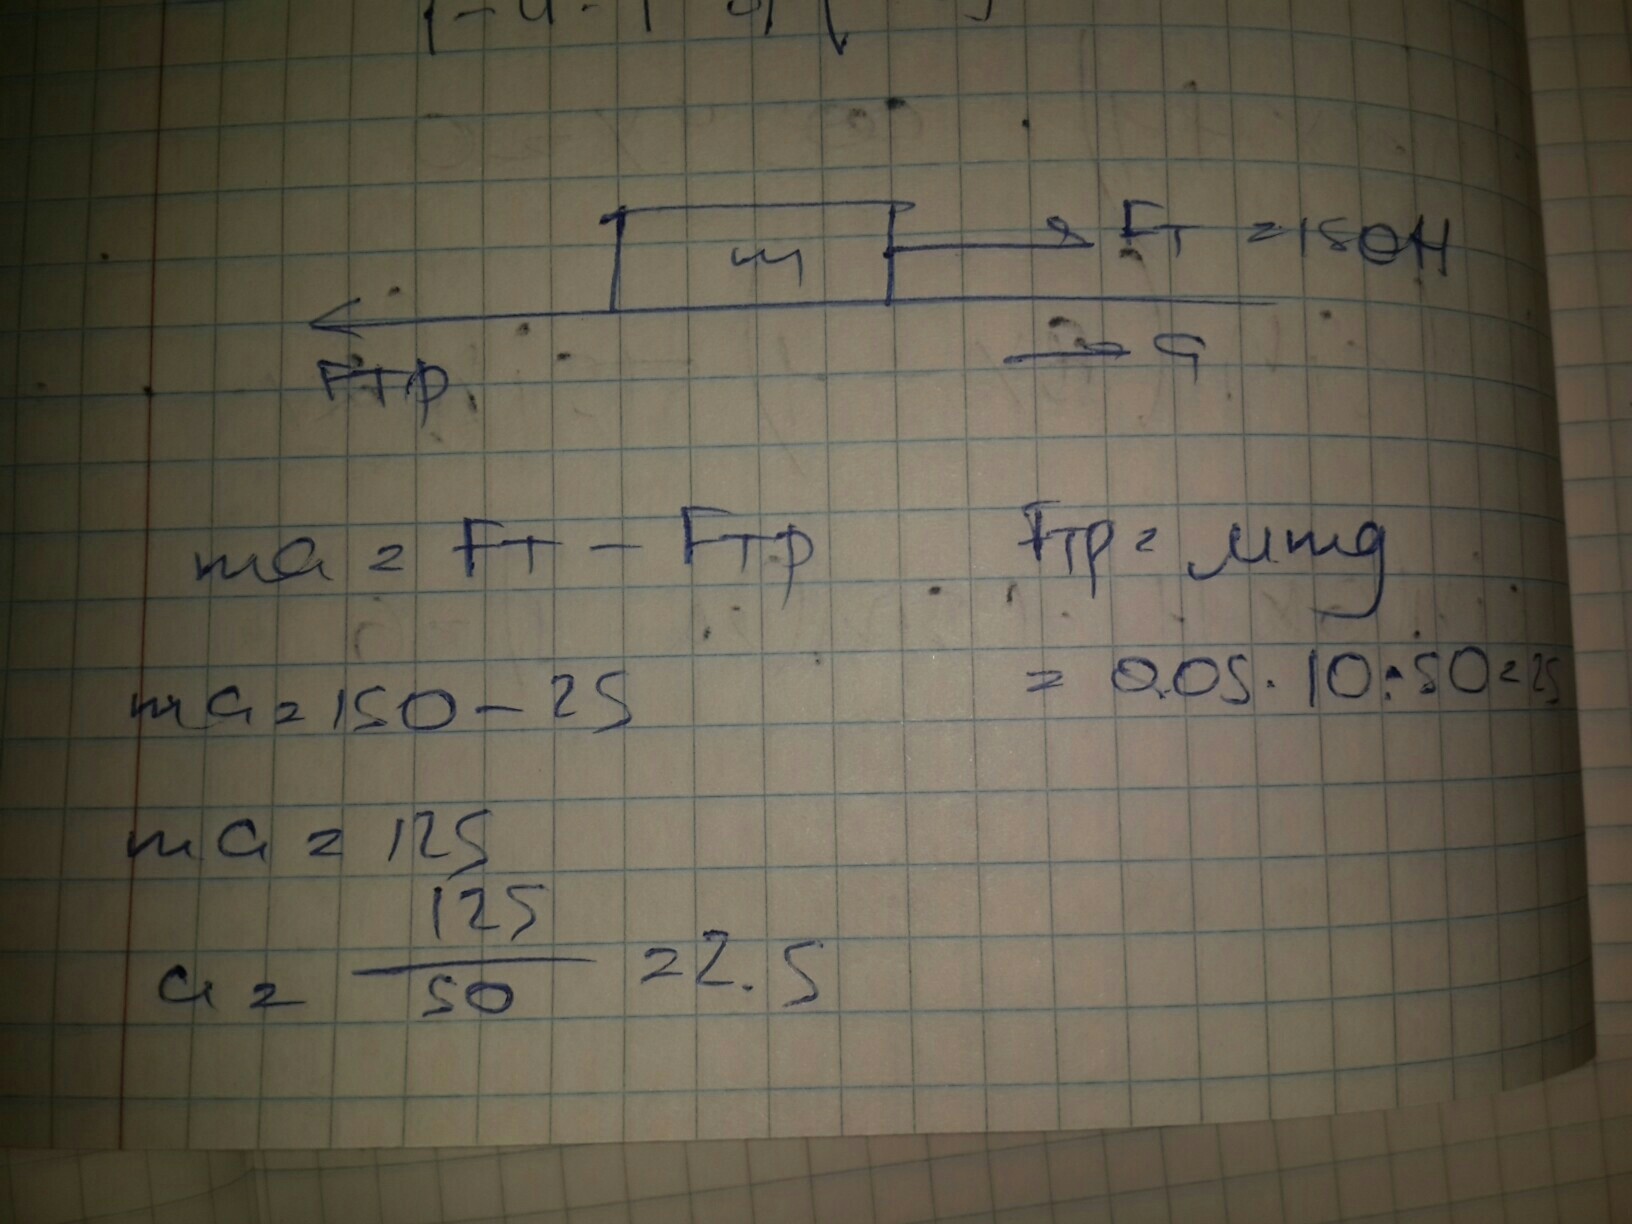 m Fт = 150H
Fтр a
ma = Fт - Fтр Fтр = μmg
ma = 150 - 25 = 0.05 · 10 · 50 = 25
ma = 125
a = 125/50 = 2.5